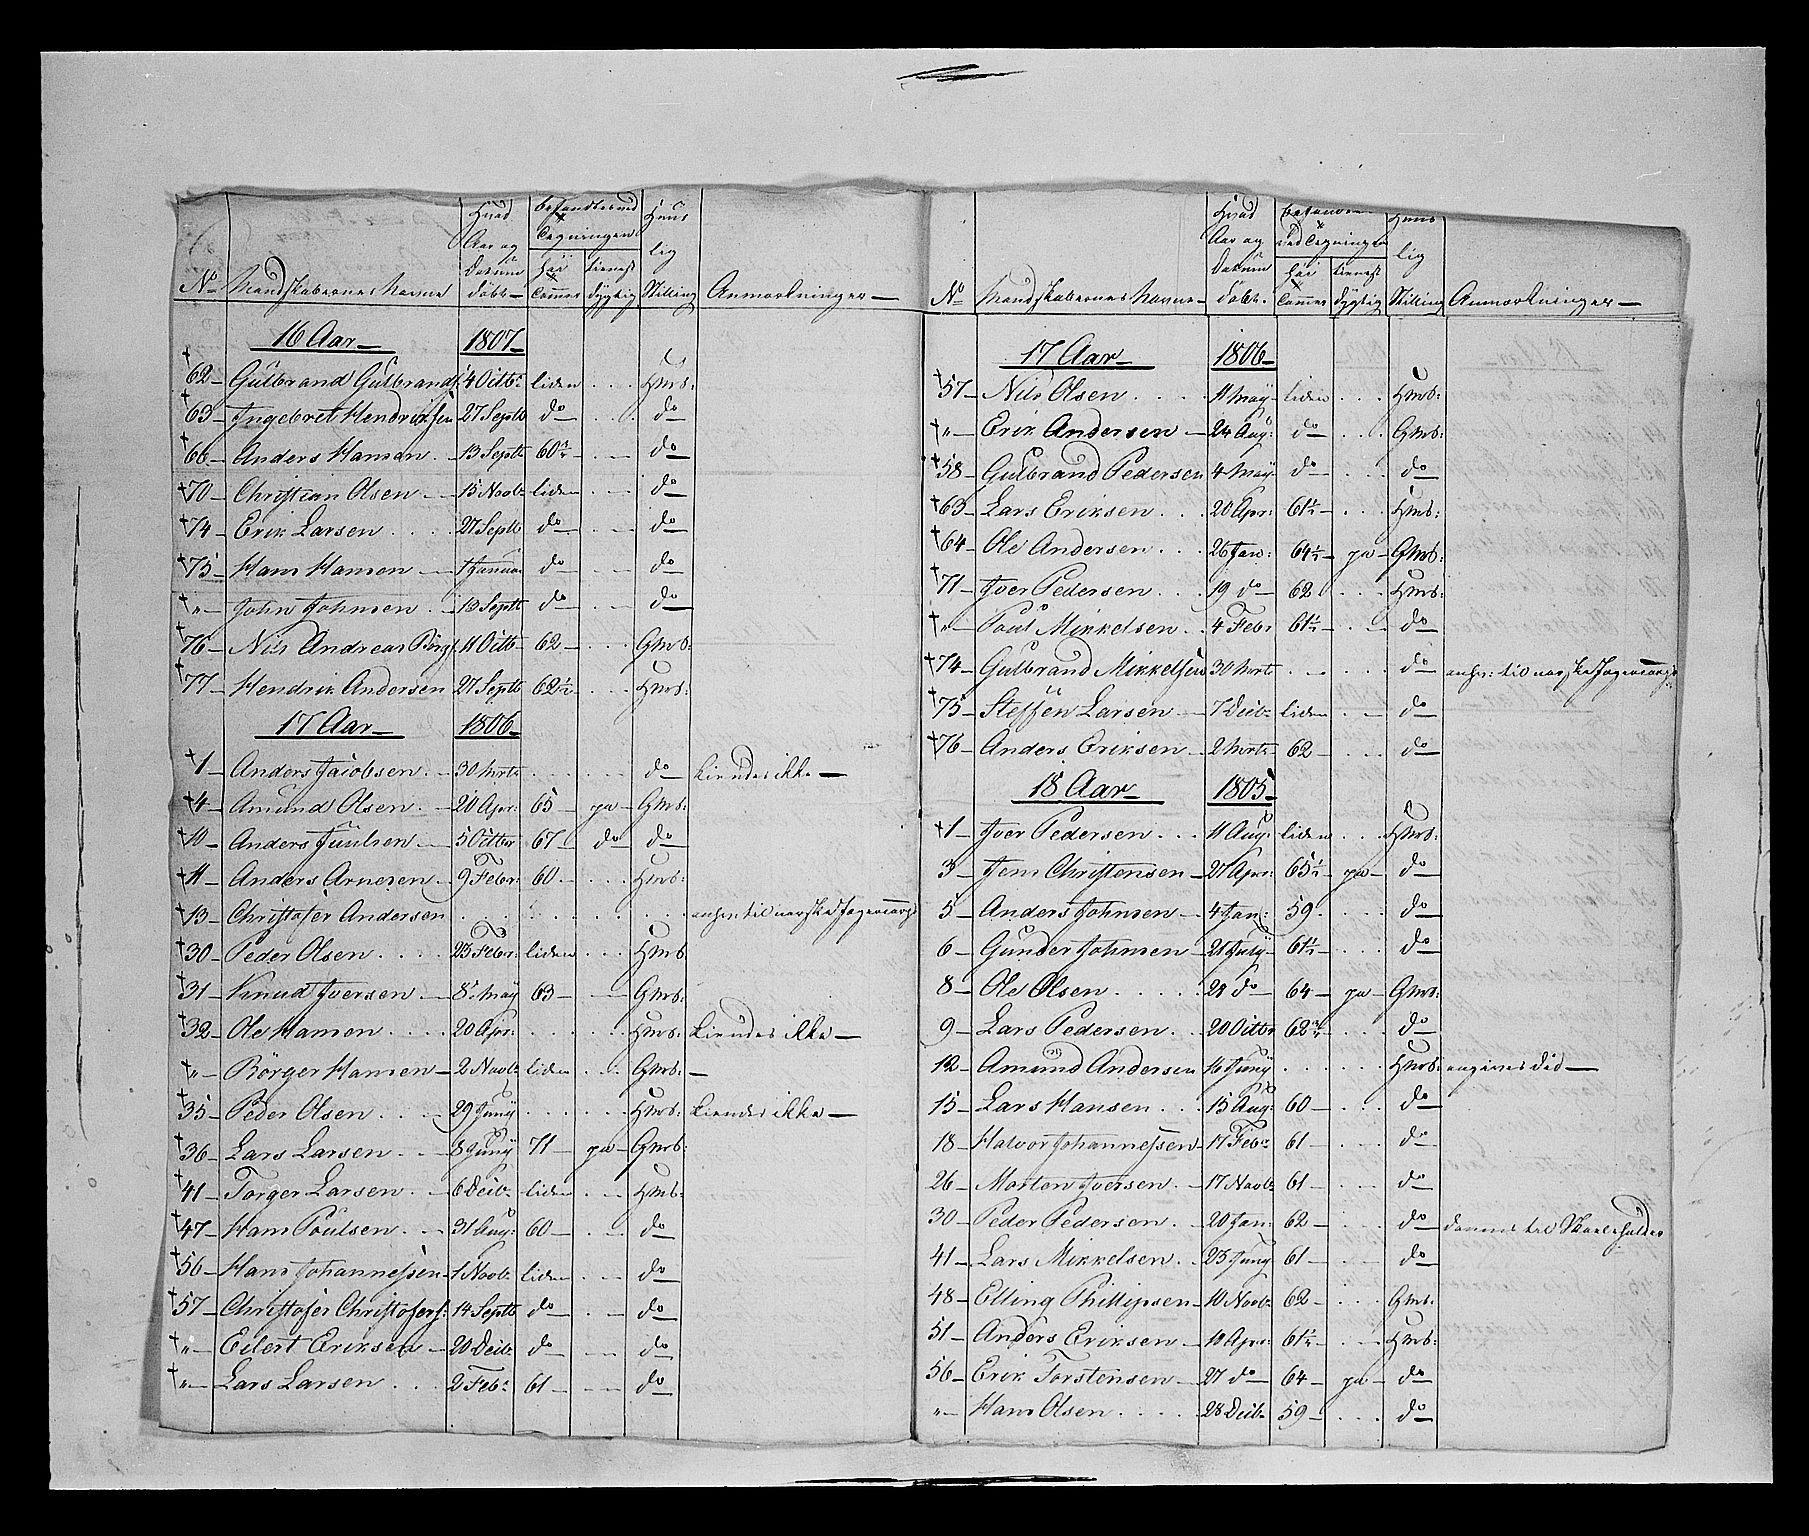 No Mandskabernes Navne Hvad Aar og Datum døbt Befandtes ved Tegningen Høi Tommer tienest dygtig Huus lig Stilling Anmærkninger
16 Aar 1807
† 62 Gulbrand Gulbrands: 4 Octbr liden Hmb:
† 63 Ingebret Hendriksen 27 Septb do do
† 66 Anders Hansen 13 Septb 60 do
† 70 Christian Olsen 15 Novb liden do
† 74 Erik Larsen 27 Septb do do
† 75 Hans Hansen 1 Januar do do
† " John Johnsen 13 Septb do do
† 76 Nils Andreas Børg 11 Octb 62 Gmb:
† 77 Hendrik Andersen 27 Septb 62½ Hmb:
17 Aar 1806
† 1 Anders Jacobsen 30 Mrts do kiendes ikke
† 4 Amund Olsen 20 Apr: 65 ja Gmb:
† 10 Anders Juulsen 5 Octbr 67 do do
† 11 Anders Arnesen 9 Febr: 60 Hmb:
† 13 Christofer Andersen anher: til norske Jægercorps
† 30 Peder Olsen 23 Febr: liden Hmb
† 31 Knud Iversen 8 May 63 Gmb:
† 32 Ole Hansen 20 Apr: Hmb: kiendes ikke
† " Børger Hansen 2 Novb liden Gmb:
† 35 Peder Olsen 29 Juny Hmb: kiendes ikke
† 36 Lars Larsen 8 Juny 71 ja Gmb:
† 41 Torger Larsen 6 Decb liden Hmb:
† 47 Hans Poulsen 31 Aug: 60 do
† 56 Hans Johannesen 1 Novb liden do
† 57 Christofer Christofers: 14 Septb do do
† " Eilert Eriksen 20 Decb do do
† " Lars Larsen 2 Febr 61 do
No Mandskabernes Navne Hvad Aar og Datum døbt Befandtes ved Tegningen Høi Tommer tienest dygtig Huus lig Stilling Anmærkninger
17 Aar 1806
† 57 Nils Olsen 11 May liden Hmb:
† " Erik Andersen 24 Aug: do Gmb:
† 58 Gulbrand Pedersen 4 May do do
† 63 Lars Eriksen 20 Apr: 61½ Hmb:
† 64 Ole Andersen 26 Jan: 64½ ja Gmb:
† 71 Iver Pedersen 19 do 62 Hmb:
† " Poul Mikkelsen 4 Febr 61½ do
† 74 Gulbrand Mikkelsen 30 Mrts do anher: til norske Jægercorps
† 75 Steffen Larsen 7 Decb liden do
† 76 Anders Eriksen 2 Mrts 62 do
18 Aar 1805
† 1 Iver Pedersen 11 Aug: liden Hmb:
3 Jens Christensen 21 Apr: 65½ ja do
5 Anders Johnsen 4 Jan: 59 do
6 Gunder Johnsen 21 July 61½ do
8 Ole Olsen 28 do 64 ja Gmb:
9 Lars Pedersen 20 Octbr 62 do
12 Amund Andersen 16 Juny Hmb: angives død
15 Lars Hansen 15 Aug: 60 do
18 Halvor Johannessen 17 Febr 61 do
26 Morten Iversen 17 Novb 61 do
30 Peder Pedersen 20 Jan: 62 do dannes til Skoleholder
41 Lars Mikkelsen 23 Juny 61 do
48 Elling Phillipsen 10 Novb 62 Gmb:
51 Anders Eriksen 10 Apr: 61½ Hmb:
56 Erik Torstensen 27 do 64 ja do
" Hans Olsen 28 Decb 59 do